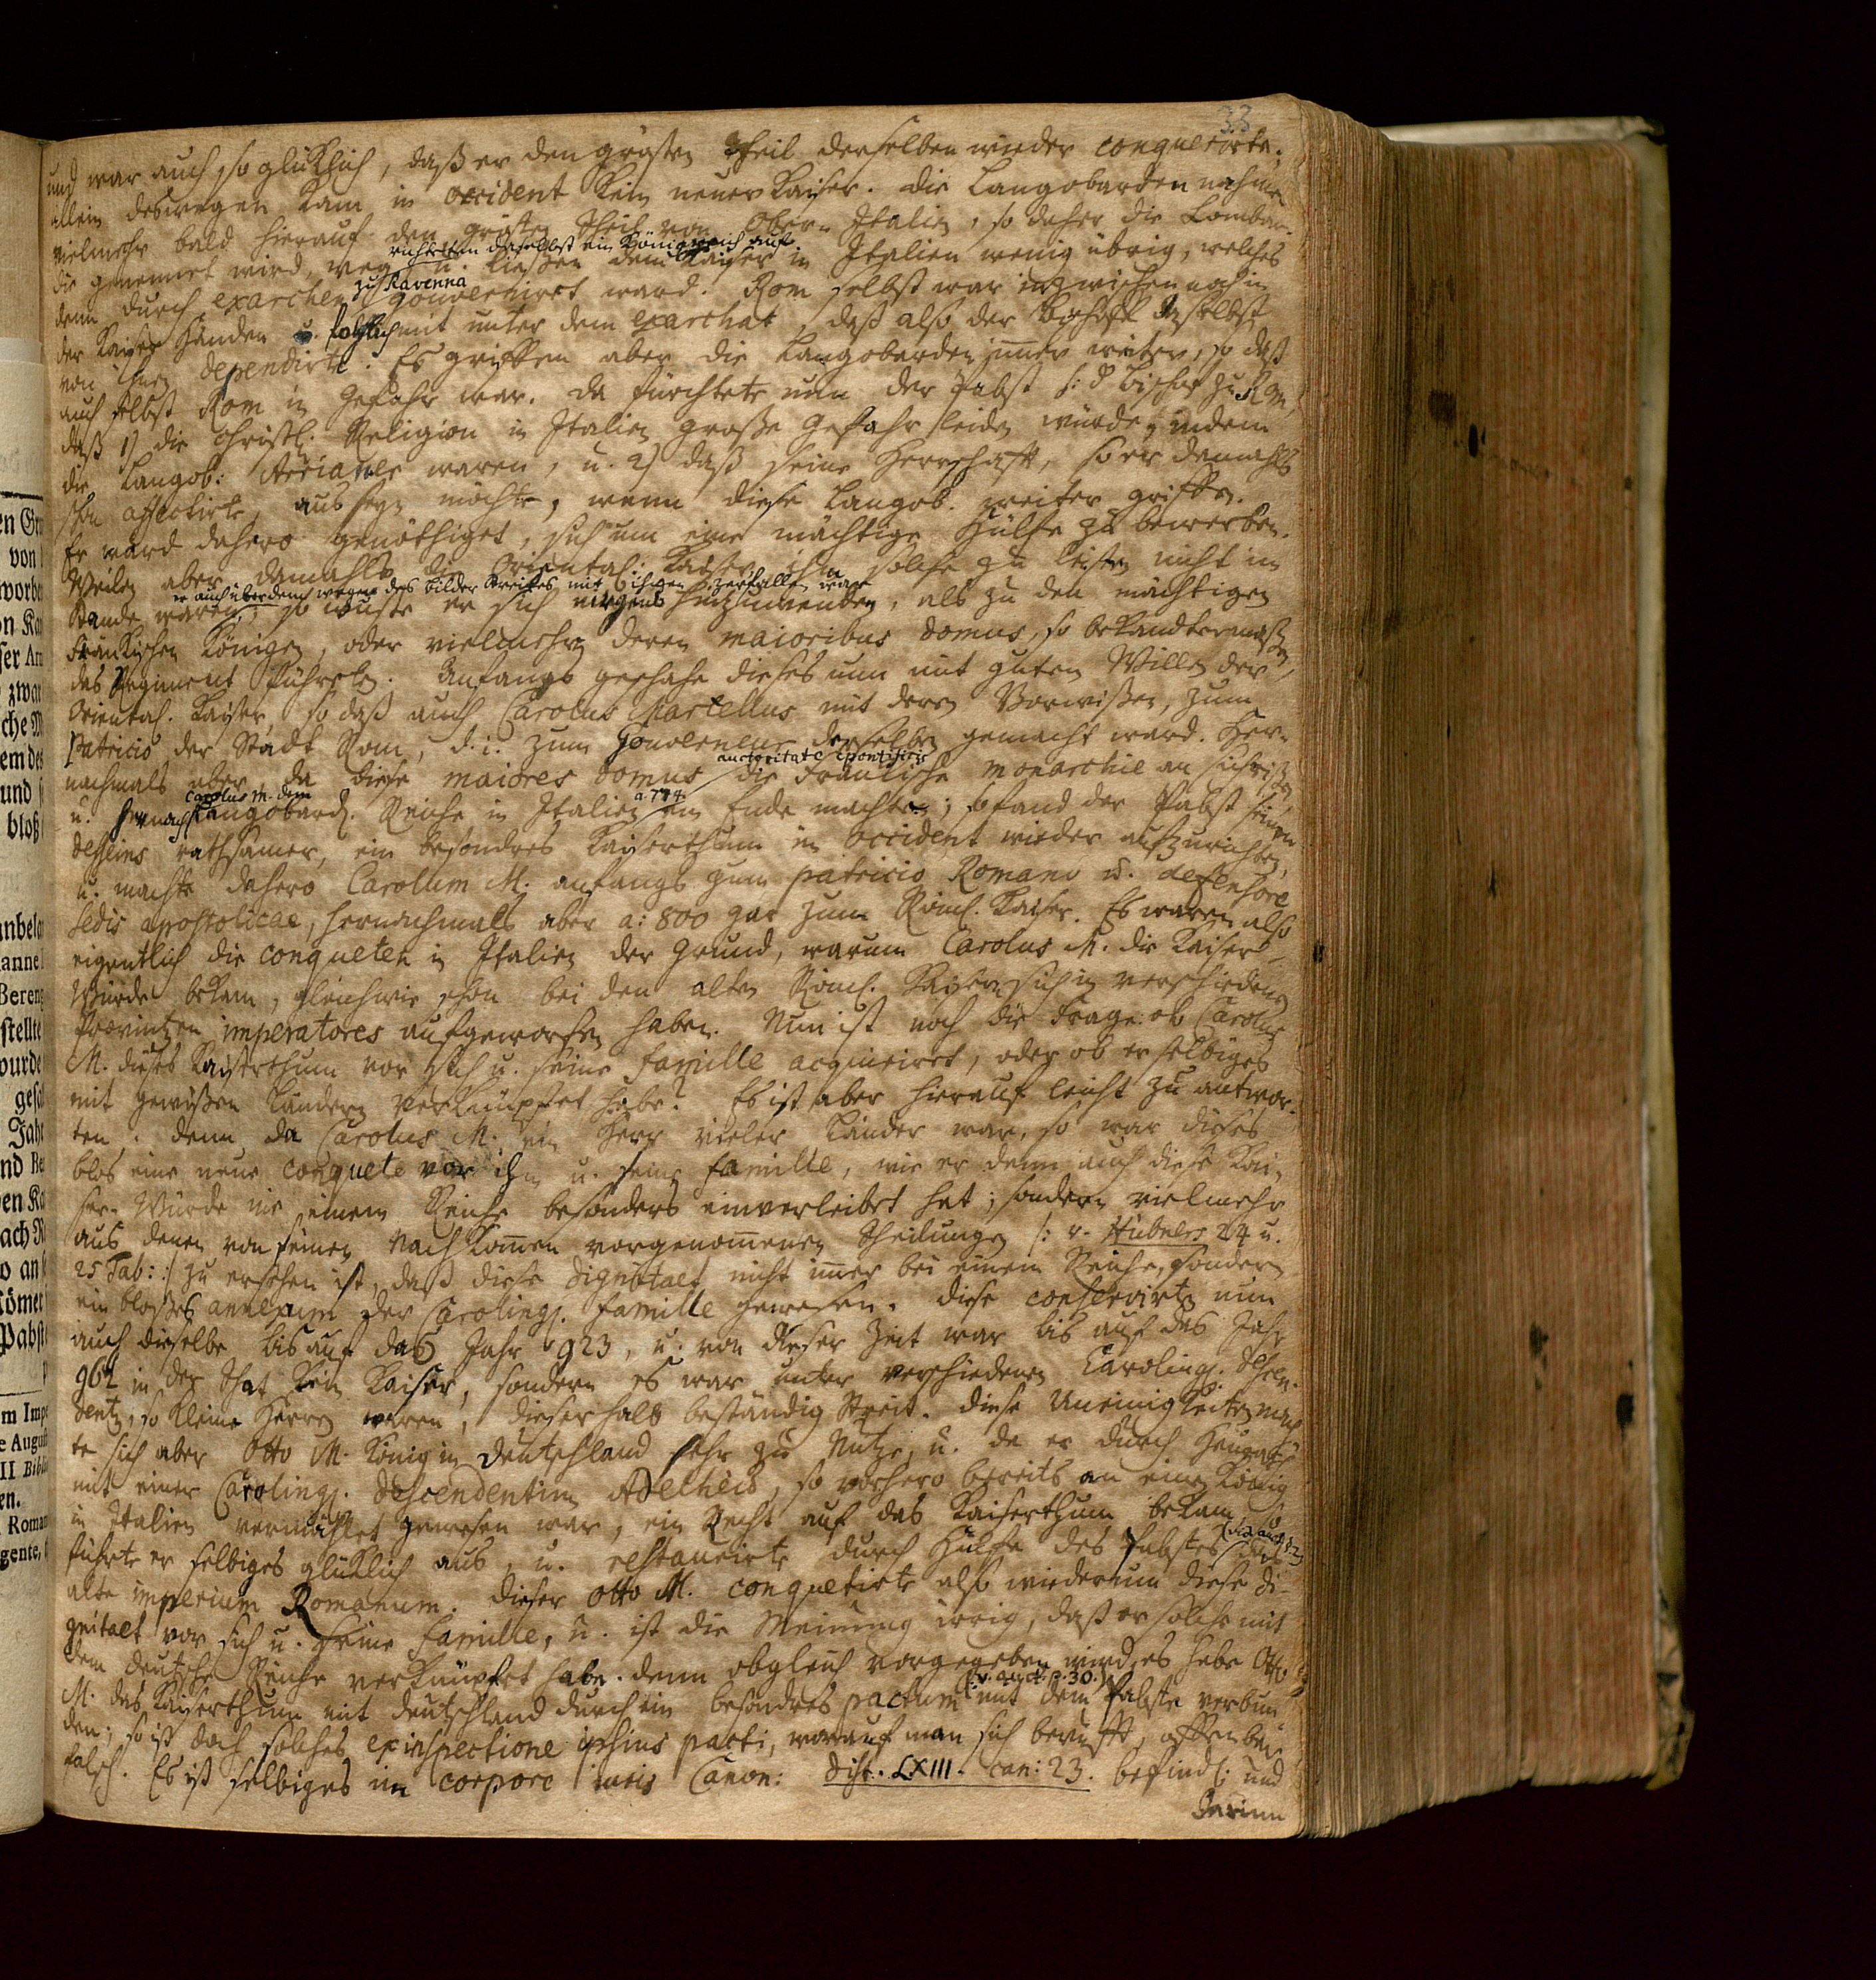 33
und war auch so glücklich, daß er den grösten Theil derselben wieder conquetirte;
allein deswegen kam in occident kein neuer Kaiser. Die Langobarden nahmen
vielmehr bald hierauf den grösten Theil von Ober- Italien, so daher die Lombar-
richteten daselbst ein Königreich auf
die genennet wird, weg u. ließen dem Kaiser in Italien wenig übrig, welches
zu Ravenna
denn durch exarchen gouverniret ward. Rom selbst war inzwischen noch in
der Kaiser Händen u. folglich mit unter dem exarchat, daß also der Bischoff daselbst
von ihnen dependirte. Es griffen aber die Langobarden im̅er weiter, so daß
auch selbst Rom in Gefahr war. Da fürchtete nun der Pabst /: d. Bischof zu Rom,
daß 1) die christl. Religion in Italien große Gefahr leiden würde, indem
die Langob: Arrianer waren, u. 2) daß seine Herrschaft, so er damahls
schon affectirte, aus seyn möchte, wenn diese Langob. weiter griffen.
Er ward dahero genöthiget, sich um eine mächtige Hülfe zu bewerben.
Weilen aber damahls die Oriental: Kaiser ihm solche zu leisten nicht im
er auch überdem wegen des Bilder Streites mit ihnen zerfallen war
Stande waren, so wuste er sich nirgends hinzuwenden, als zu den mächtigen
Fränkischen Königen, oder vielmehr deren maioribus domus, so bekandtermaßen
das Regiment führeten. Anfangs geschahe dieses nun mit guten Willen der
Oriental. Kaiser, so daß auch Carolus Martellus mit deren Vorwißen, zum
Patricio der Stadt Rom, d. i. zum Gouverneur derselben gemacht ward. Her-
auctoritate pontificis
nachmals aber, da diese maiores domus die Fränkische monarchie an sich rißen,
Carolus M. dem a. 774.
u. hernach Langobard. Reiche in Italien ein Ende machte; so fand der Pabst seines
desseins rathsamer, ein besondres Kaiserthum in occident wieder aufzurichten,
u. machte dahero Carolum M. anfangs zum patricio Romano u. defensore
sedis apostolicae, hernachmals aber a: 800 gar zum Röm. Kaiser. Es waren also
eigentlich die conqueten in Italien der Grund, warum Carolus M. die Kaiser-
Würde bekam, gleichwie schon bei den alten Röm. Kaisern sich in verschiedenen
Provintzen imperatores aufgeworfen haben. Nun ist noch die Frage: ob Carolus
M. dieses Kaiserthum vor sich u. seine Famille acquiriret, oder ob er selbiges
mit gewißen Ländern verknüpfet habe? Es ist aber hierauf leicht zu antwor-
ten. Denn da Carolus M. ein Herr vieler Länder war, so war dieses
blos eine neue conquete vor ihn u. seine Famille, wie er denn auch diese Kai-
ser- Würde nie einem Reiche besonders einverleibet hat; sondern vielmehr
aus denen von seinen Nachkom̅en vorgenom̅enen Theilungen /: v. Hübners 24 u.
25 Tab: :/ zu ersehen ist, daß diese dignitaet nicht im̅er bei einem Reiche, sondern
ein bloßes annexum der Caroling. Famille gewesen. Diese conservirte nun
auch dieselbe bis auf das Jahr 923, u. von dieser Zeit war bis auf das Jahr
962 in der That kein Kaiser, sondern es war unter verschiedenen Caroling. descen-
denten, so kleine Herren waren, dieserhalb beständig Streit. Diese Uneinigkeiten mach
te sich aber Otto M. König in Deutschland sehr zu Nutze, u. da er durch Heurath
mit einer Caroling. descendentin Adelheid, so vorhero bereits an einen König
in Italien vermählet gewesen war, ein Recht auf das Kaiserthum bekam, so
führte er selbiges glücklich aus, u. restaurirte durch Hülfe des Pabstes das
alte imperium Romanum. Dieser Otto M. conquetirte also wiederum diese di-
gnitaet vor sich u. seine Famille, u. ist die Meinung irrig, daß er solche mit
dem deutschen Reiche verknüpfet habe. Denn obgleich vorgegeben wird, es habe Otto
(v. auct. p. 30.)
M. das Kaiserthum mit Deutschland durch ein besondres pactum mit dem Pabste verbun
den; so ist doch solches ex inspectione ipsius pacti, worauf man sich beruft, offenbar
falsch. Es ist selbiges im corpore iuris Canon: Dist. LXIII. can: 23. befindl: und
darinn